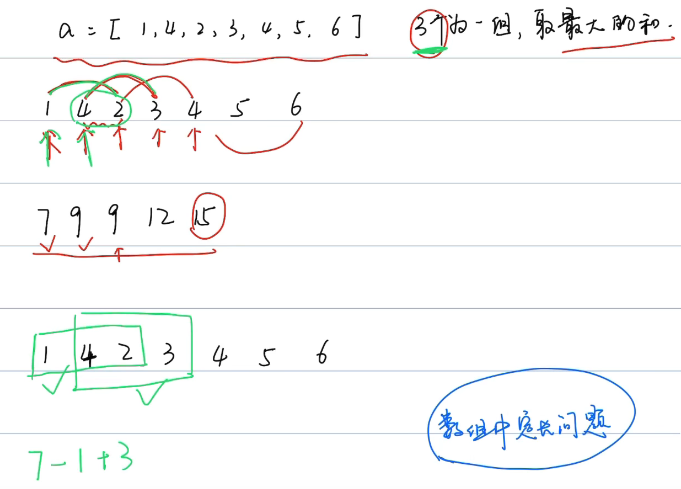 a = [ 1, 4, 2, 3, 4, 5, 6 ] 3个为一组,取最大的和.
1 4 2 3 4 5 6
7 9 9 12 15
1 4 2 3 4 5 6
数组中定长问题
7-1+3